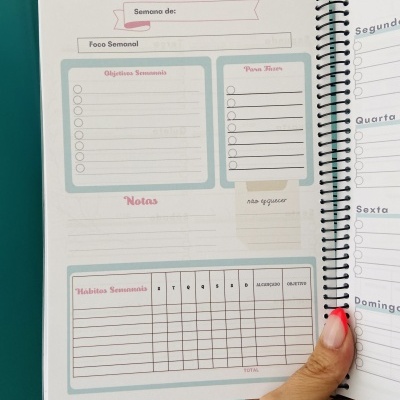 Semana de:
Foco Semanal
Objetivos Semanais
Para Fazer
Notas
não esquecer
Hábitos Semanais S T Q Q S S D ALCANÇADO OBJETIVO
TOTAL
Segund
Quarta
Sexta
Doming